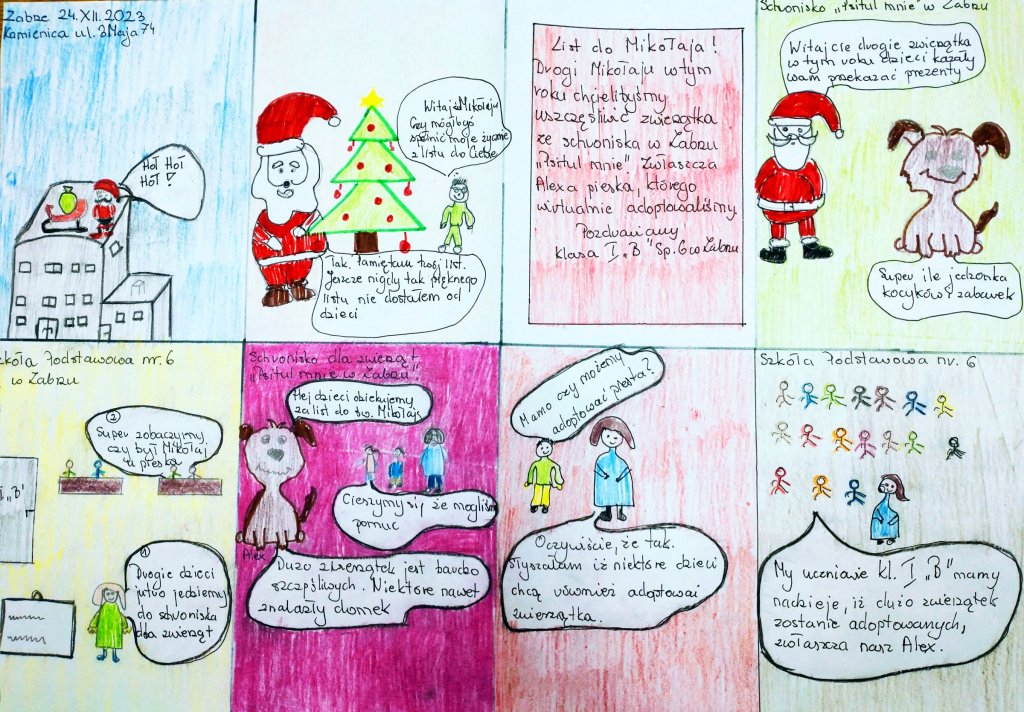 Zabrze 24.XII.2023
Kamienica ul. 3 Maja 74
Ho! Ho!
Ho! !
Witaj Mikołaju
Czy mógłbyś
spełnić moje życzenie
z listu do Ciebie
Tak. Pamiętam twój list.
Jeszcze nigdy tak pięknego
listu nie dostałem od
dzieci
List do Mikołaja!
Drogi Mikołaju w tym
roku chcielibyśmy
uszczęśliwić zwierzątka
ze schroniska w Zabrzu
"Psitul mnie" Zwłaszcza
Alexa pieska, którego
wirtualnie adoptowaliśmy.
Pozdrawiamy
klasa I „B" Sp. 6 w Zabrzu
Schronisko „Psitul mnie" w Zabrzu
Witajcie drogie zwierzątka
w tym roku dzieci kazały
wam przekazać prezenty
Super ile jedzonka
kocyków i zabawek
Szkoła Podstawowa nr. 6
w Zabrzu
②
Super zobaczymy,
czy był Mikołaj
u pieska
I „B"
①
Drogie dzieci
jutro jedziemy
do schroniska
dla zwierząt
Schronisko dla zwierząt
"Psitul mnie w Zabrzu"
Hej dzieci dziękujemy
za list do św. Mikołaja
Cieszymy się, że mogliśmy
pomuc
Alex
Dużo zwierzątek jest bardzo
szczęśliwych. Niektóre nawet
znalazły domek
Mamo czy możemy
adoptować pieska?
Oczywiście, że tak.
Słyszałam iż niektóre dzieci
chcą również adoptować
zwierzątka.
Szkóła Podstawowa nr. 6
My uczniowie kl. I „B" mamy
nadzieje, iż dużo zwierzątek
zostanie adoptowanych,
zwłaszcza nasz Alex.